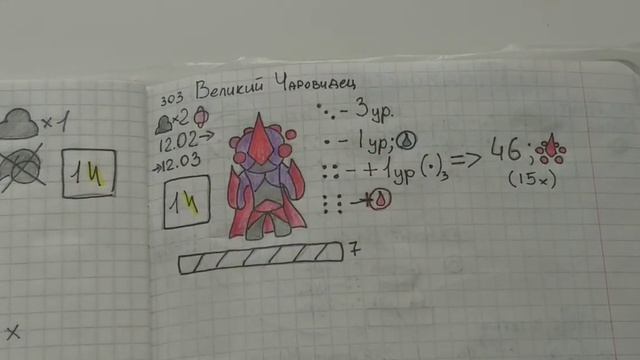 x1
1ч
x
303 Великий Чаровидец
x2
12.02→
→12.03
1ч
- 3 ур.
- 1 ур;
- +1 ур (·)₃ => 46;
(15x)
7